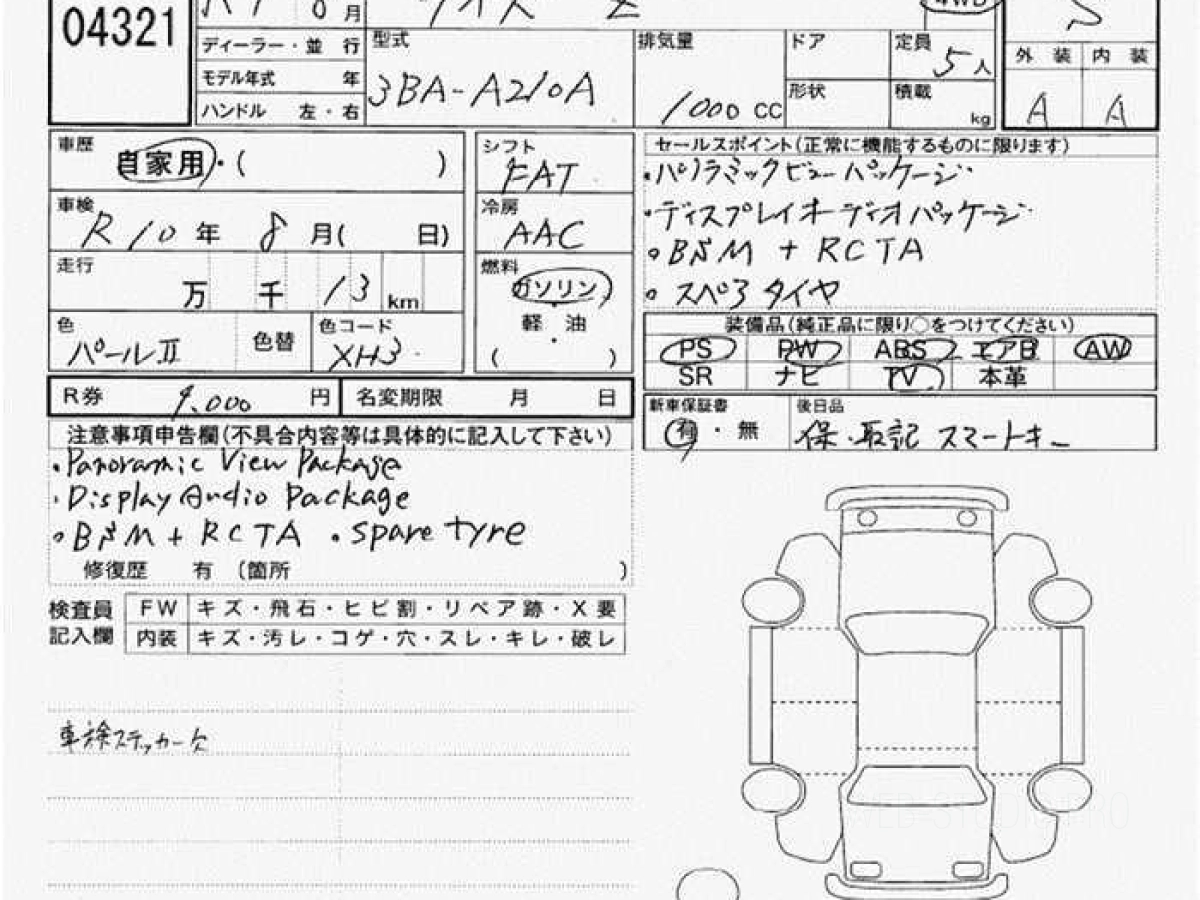 04321
8月
Z
4WD
S
ディーラー・並行
モデル年式 年
ハンドル 左・右
型式
3BA-A210A
排気量
1000 cc
ドア
形状
定員
5人
積載
kg
外装 内装
A A
車歴
自家用・( )
シフト
FAT
車検
R10年 8月( 日)
冷房
AAC
走行
万 千 13 km
燃料
ガソリン
・
軽油
・
( )
色
パールⅡ
色替
色コード
XH3
セールスポイント(正常に機能するものに限ります)
・パノラミックビューパッケージ
・ディスプレイオーディオパッケージ
。BSM + RCTA
。スペアタイヤ
装備品(純正品に限り○をつけてください)
PS PW ABS エアB AW
SR ナビ TV 本革
R券 9,000 円
名変期限 月 日
新車保証書
有・無
後日品
保・取記 スマートキー
注意事項申告欄(不具合内容等は具体的に記入して下さい)
・Panoramic View Package
・Display Audio Package
。BSM + RCTA ・spare tyre
修復歴 有 (箇所 )
検査員
記入欄
FW キズ・飛石・ヒビ割・リペア跡・X要
内装 キズ・汚レ・コゲ・穴・スレ・キレ・破レ
車検ステッカー欠